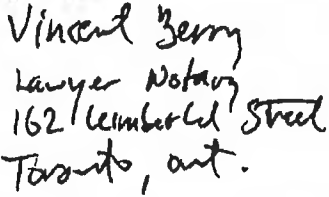 Vincent Berry
Lawyer Notary
162 Cumberland Street
Toronto, Ont.